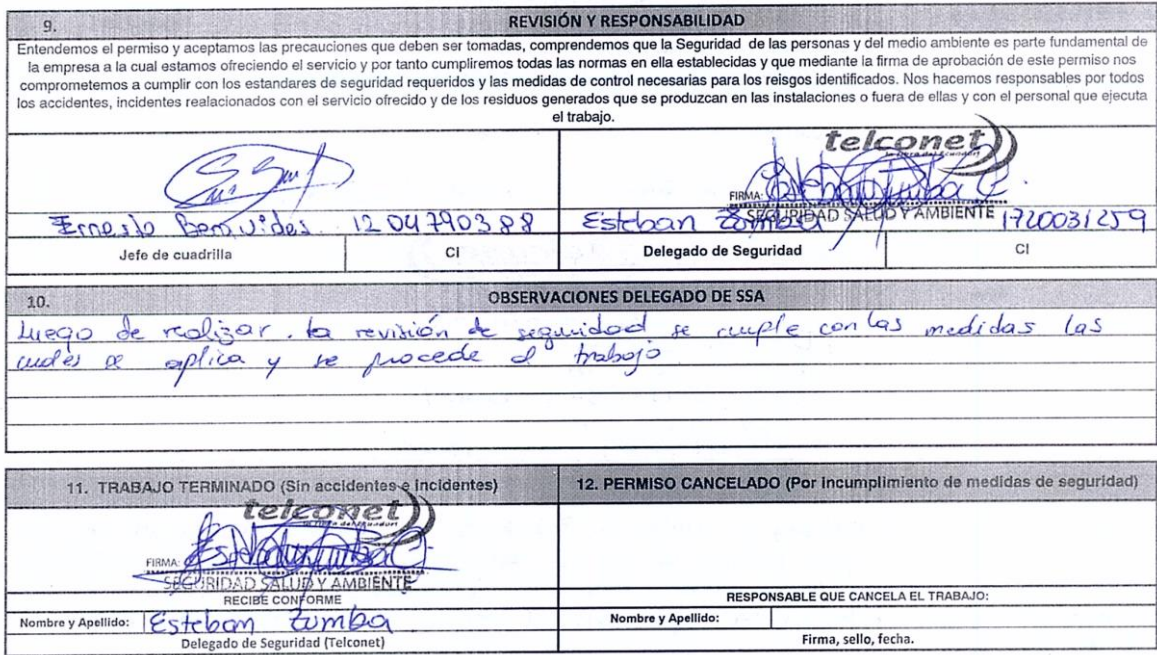 9. REVISIÓN Y RESPONSABILIDAD
Entendemos el permiso y aceptamos las precauciones que deben ser tomadas, comprendemos que la Seguridad de las personas y del medio ambiente es parte fundamental de
la empresa a la cual estamos ofreciendo el servicio y por tanto cumpliremos todas las normas en ella establecidas y que mediante la firma de aprobación de este permiso nos
comprometemos a cumplir con los estandares de seguridad requeridos y las medidas de control necesarias para los reisgos identificados. Nos hacemos responsables por todos
los accidentes, incidentes realacionados con el servicio ofrecido y de los residuos generados que se produzcan en las instalaciones o fuera de ellas y con el personal que ejecuta
el trabajo.
telconet
FIRMA:
SEGURIDAD SALUD Y AMBIENTE
Ernesto Benavides 1204790388 Esteban Zumba 1720031259
Jefe de cuadrilla CI Delegado de Seguridad CI
10. OBSERVACIONES DELEGADO DE SSA
Luego de realizar la revisión de seguridad se cumple con las medidas las
cuales se aplica y se procede el trabajo
11. TRABAJO TERMINADO (Sin accidentes e incidentes) 12. PERMISO CANCELADO (Por incumplimiento de medidas de seguridad)
telconet
FIRMA:
SEGURIDAD SALUD Y AMBIENTE
RECIBE CONFORME RESPONSABLE QUE CANCELA EL TRABAJO:
Nombre y Apellido: Esteban Zumba Nombre y Apellido:
Delegado de Seguridad (Telconet) Firma, sello, fecha.